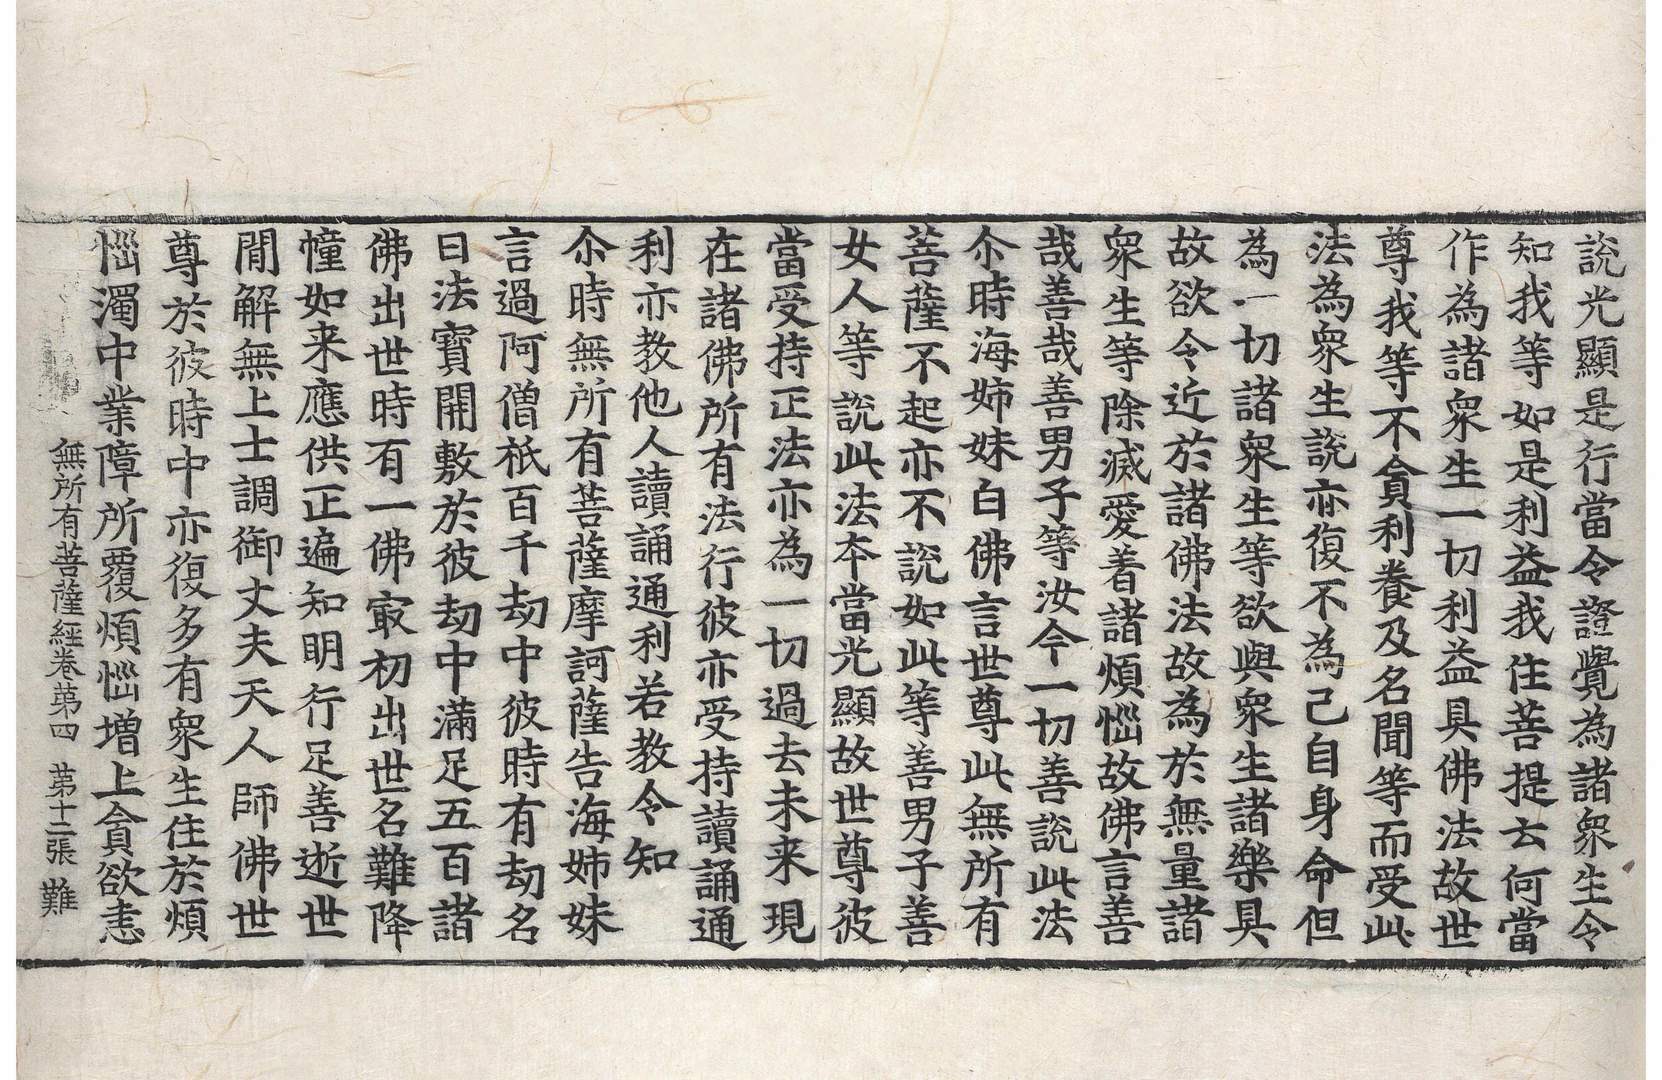 說光顯是行當令證覺為諸衆生令
知我等如是利益我住菩提云何當
作為諸衆生一切利益具佛法故世
尊我等不貪利養及名聞等而受此
法為衆生說亦復不為己自身命但
為一切諸衆生等欲與衆生諸樂具
故欲令近於諸佛法故為於無量諸
衆生等除滅愛着諸煩惱故佛言善
哉善哉善男子等汝今一切善說此法
尒時海姉妹白佛言世尊此無所有
菩薩不起亦不說如此等善男子善
女人等說此法本當光顯故世尊彼
當受持正法亦為一切過去未来現
在諸佛所有法行彼亦受持讀誦通
利亦教他人讀誦通利若教令知
尒時無所有菩薩摩訶薩告海姉妹
言過阿僧祇百千劫中彼時有劫名
曰法寶開敷於彼劫中滿足五百諸
佛出世時有一佛㝡初出世名難降
幢如来應供正遍知明行足善逝世
間解無上士調御丈夫天人師佛世
尊於彼時中亦復多有衆生住於煩
惱濁中業障所覆煩惱增上貪欲恚
無所有菩薩經卷第四　第十二張　難